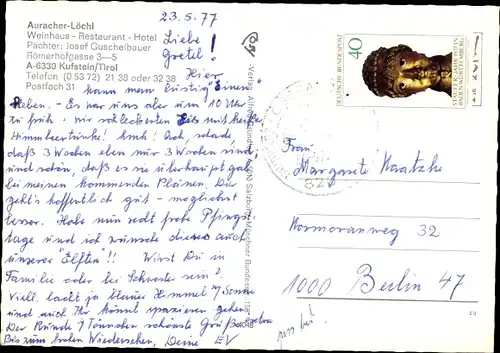 Auracher-Löchl
Weinhaus - Restaurant - Hotel
Pächter: Josef Guschelbauer
Römerhofgasse 3—5
A-6330 Kufstein/Tirol
Telefon (0 53 72) 21 38 oder 32 38
Postfach 31
23.5.77
Liebe
Gretel!
Hier
kann man lustig "Einen
heben. - Es war uns aber um 10 Uhr
zu früh - wir schleckerten Eis mit heißer
Himbeertunke! hmh! Ach, schade,
daß 3 Wochen eben nur 3 Wochen sind,
und schön, daß es sie überhaupt gab
bei meinen kommenden Plänen. Dir
geht's hoffentlich gut - möglichst
besser. Habe nun recht frohe Pfingst-
tage und ich wünsche dieses auch
unserer "Elften"!! Wirst Du in
Familie oder bei Schroder sein?
Viell. lacht ja blauer Himmel / Sonne
und auch Ihr könnt spazieren gehen
Der Runde / Tönnchen schönste Grüße
Bis zum frohen Wiedersehen, Deine EV
DEUTSCHE BUNDESPOST
40
STAUFERJAHR 1977
BADEN-WÜRTTEMBERG
Frau
Margarete Kaatzke
Kormoranweg 32
1000 Berlin 47